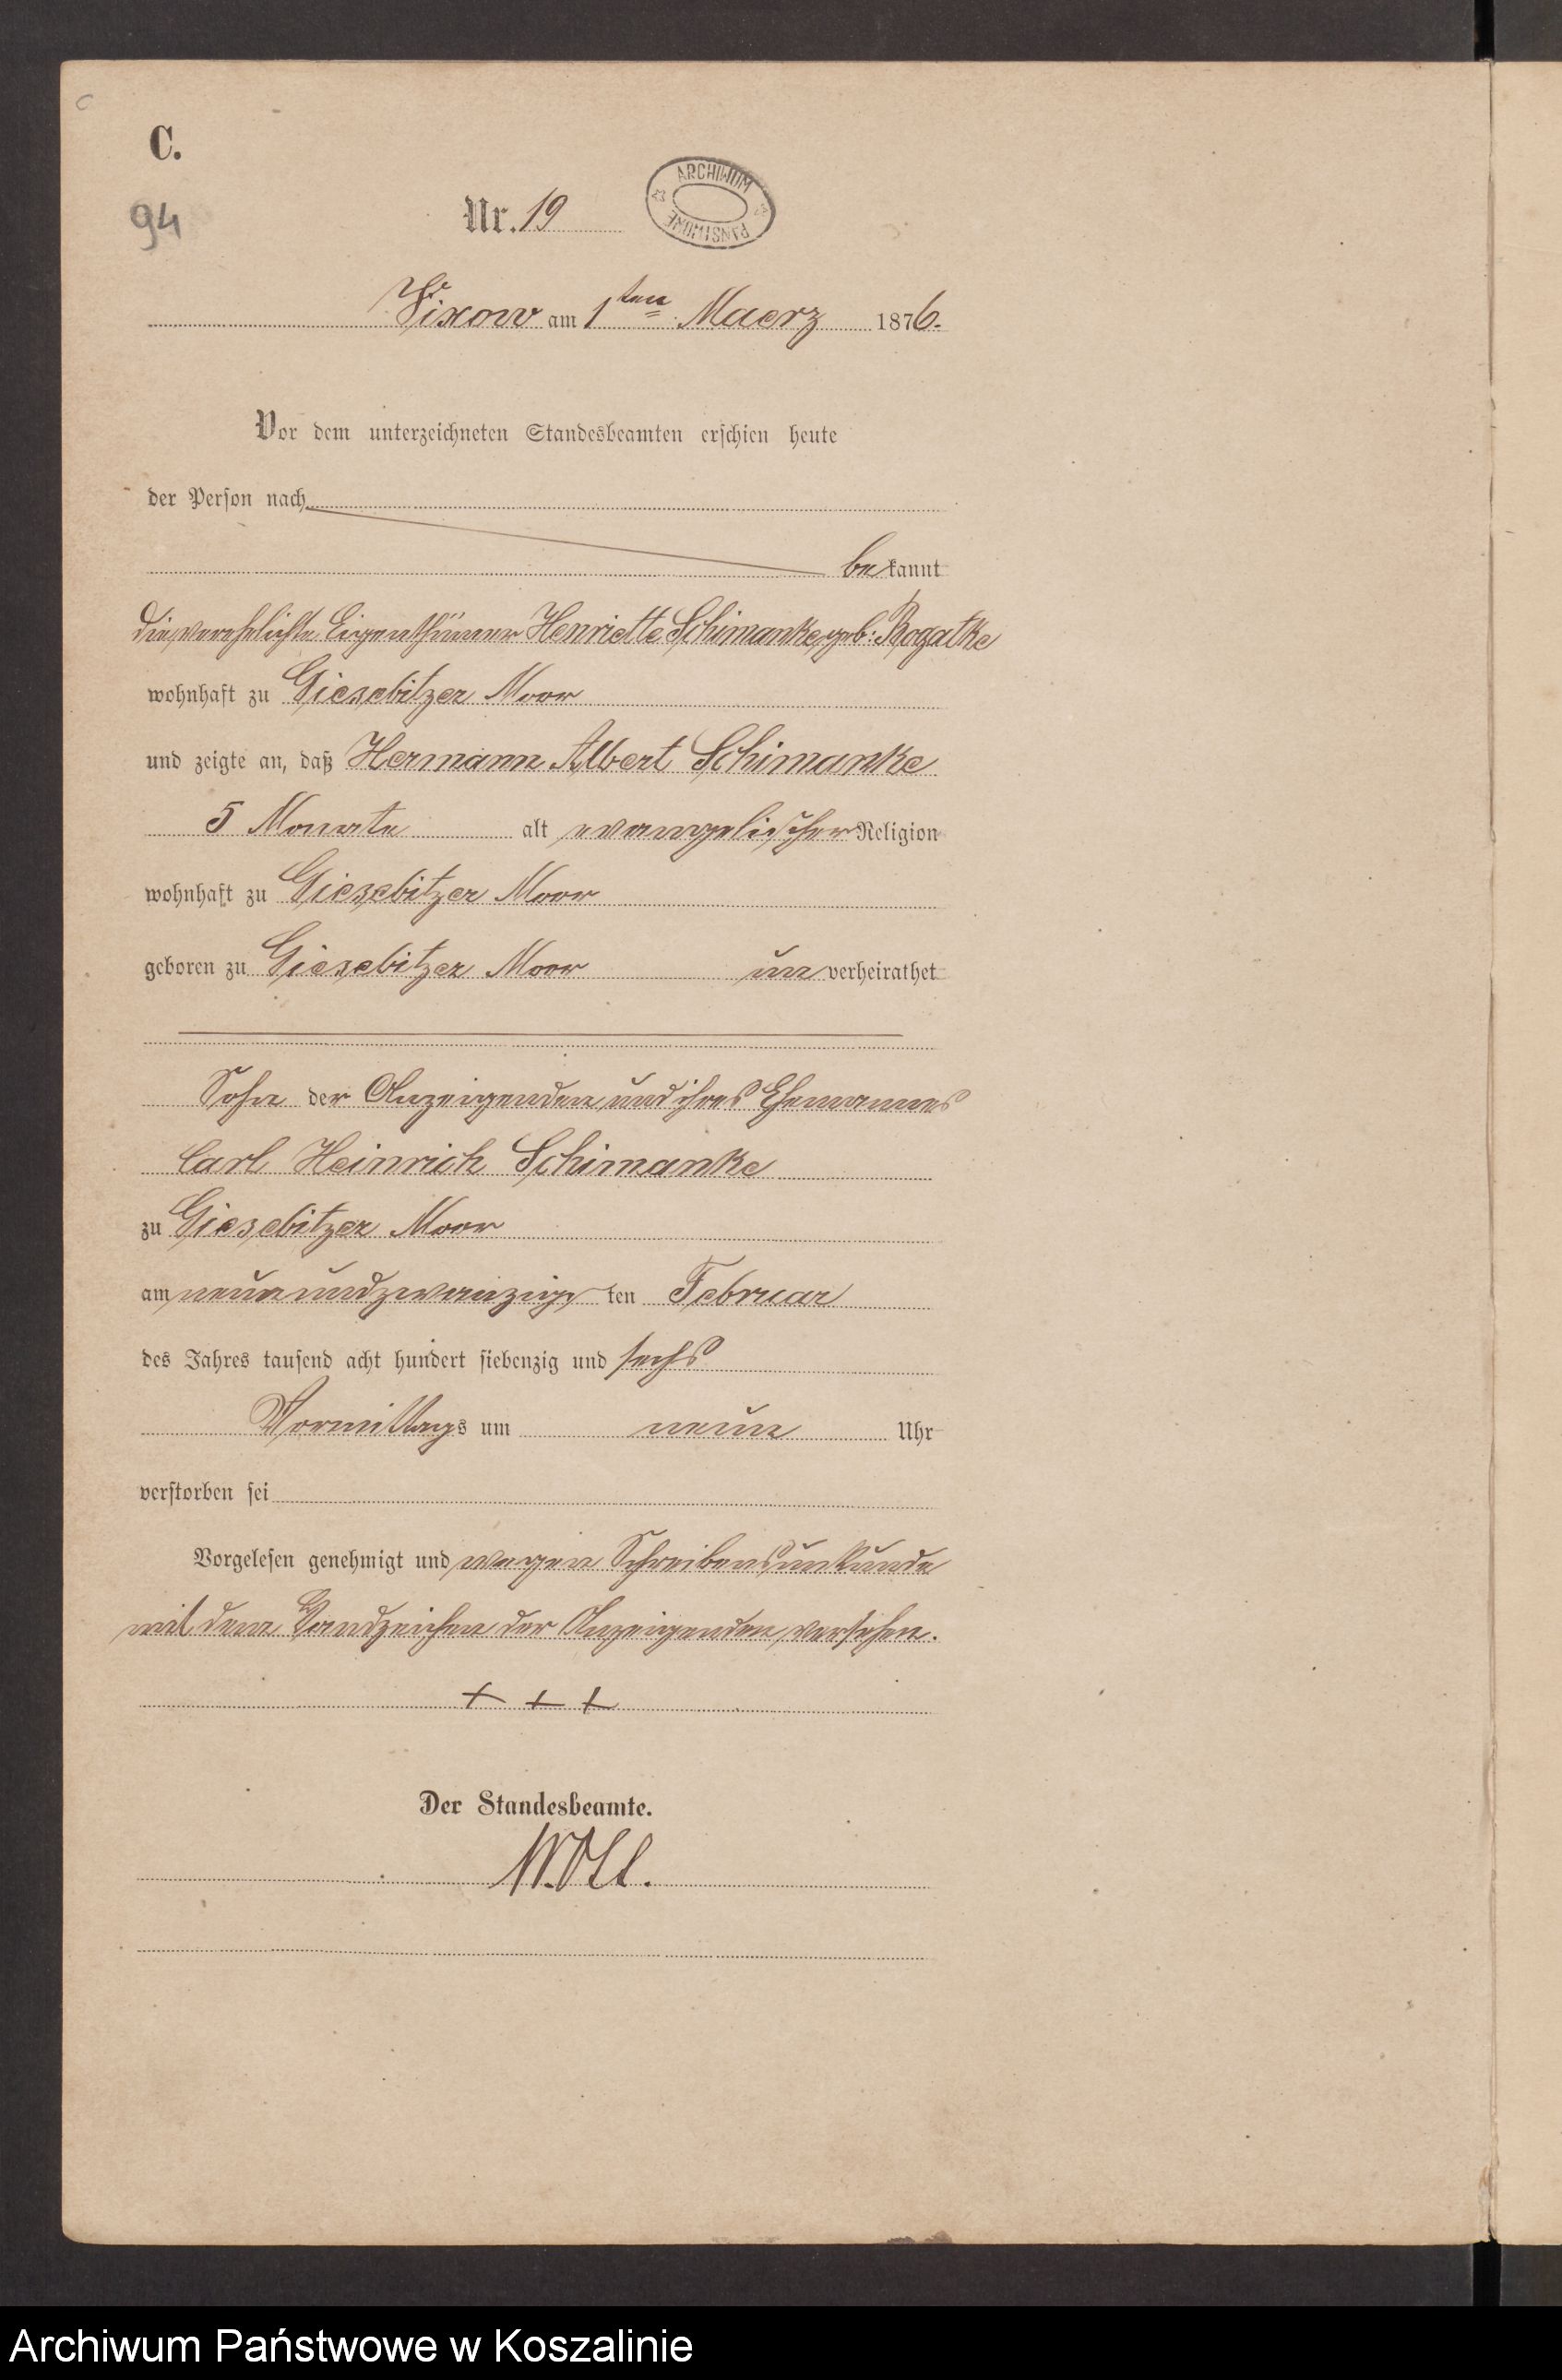 C.
94
Nr. 19
ARCHIWUM PAŃSTWOWE
Vixow am 1ten Maerz 1876.
Vor dem unterzeichneten Standesbeamten erschien heute
der Person nach
bekannt
die verehelichte Eigenthümer Henriette Schimanke, geb: Rogatke
wohnhaft zu Giesebitzer Moor
und zeigte an, daß Hermann Albert Schimanke
5 Monate alt evangelischer Religion
wohnhaft zu Giesebitzer Moor
geboren zu Giesebitzer Moor unverheirathet
Sohn der Anzeigenden und ihres Ehemannes
Carl Heinrich Schimanke
zu Giesebitzer Moor
am neunundzwanzigsten Februar
des Jahres tausend acht hundert siebenzig und sechs
Vormittags um neun Uhr
verstorben sei
Vorgelesen genehmigt und wegen Schreibensunkunde
mit dem Handzeichen der Anzeigenden versehen.
+ + +
Der Standesbeamte.
Archiwum Państwowe w Koszalinie